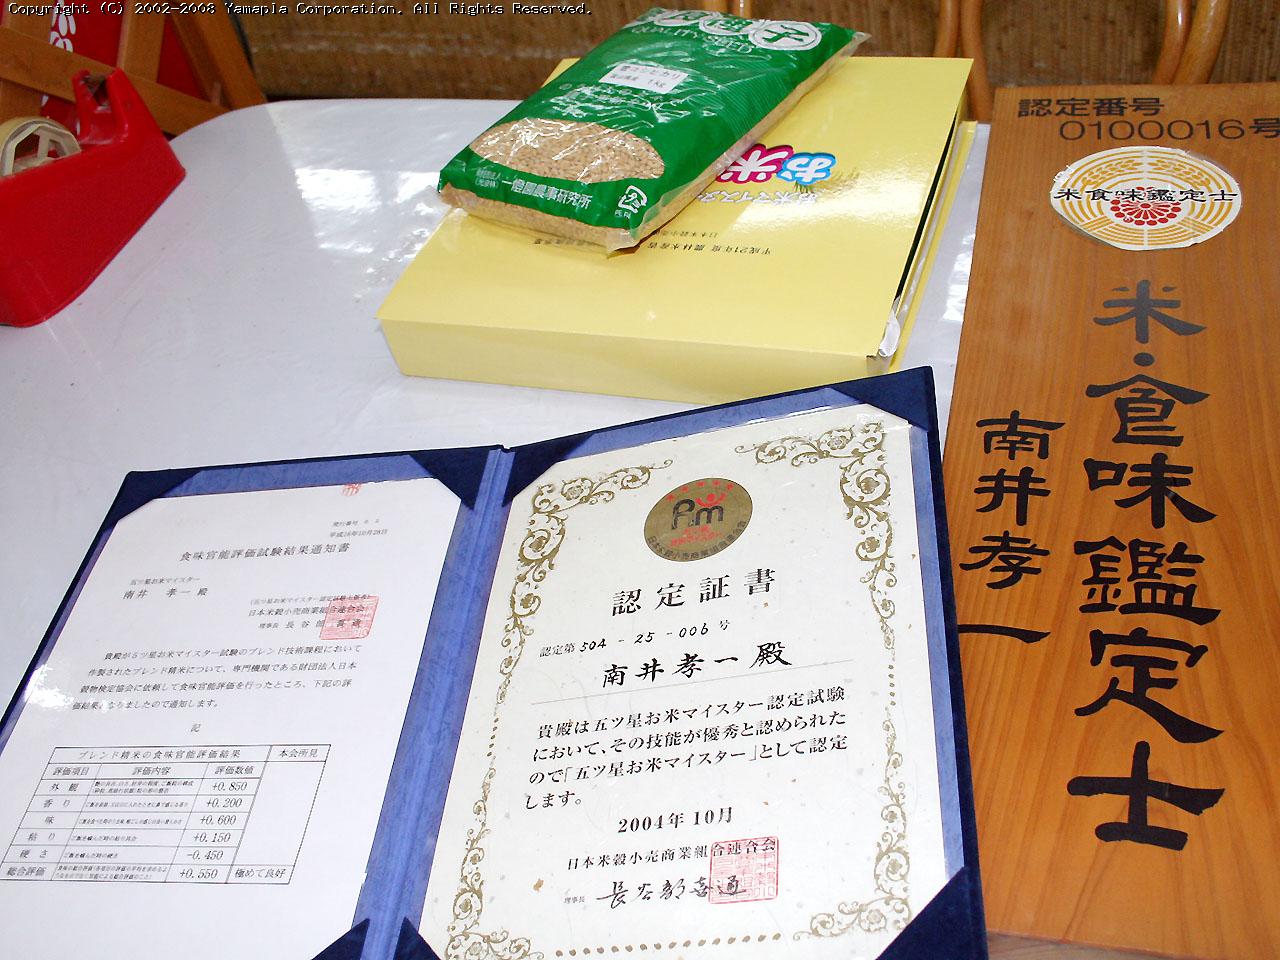 Copyright (C) 2002-2008 Yamapla Corporation. All Rights Reserved.
QUALITY SEED
1kg
一燈園農事研究所
お米
お米マイスター
平成21年度 農林水産省
認定番号
0100016号
米食味鑑定士
米・食味鑑定士
南井孝一
平成16年10月28日
食味官能評価試験結果通知書
五ツ星お米マイスター
南井 孝一 殿
日本米穀小売商業組合連合会
理事長 長谷部 喜通
貴殿が5ツ星お米マイスター試験のブレンド技術課程において
作製されたブレンド精米について、専門機関である財団法人日本
穀物検定協会に依頼して食味官能評価を行ったところ、下記の評
価結果となりましたので通知します。
記
ブレンド精米の食味官能評価結果 本会所見
評価項目 評価内容 評価数値
外 観 +0.850
香 り +0.200
味 +0.600
粘 り ご飯を噛んだ時の粘り具合 +0.150
硬 さ ご飯を噛んだ時の硬さ -0.450
総合評価 +0.550 極めて良好
認定証書
認定第504-25-006号
南井孝一殿
貴殿は五ツ星お米マイスター認定試験
において、その技能が優秀と認められた
ので「五ツ星お米マイスター」として認定
します。
2004年10月
日本米穀小売商業組合連合会
理事長 長谷部喜通